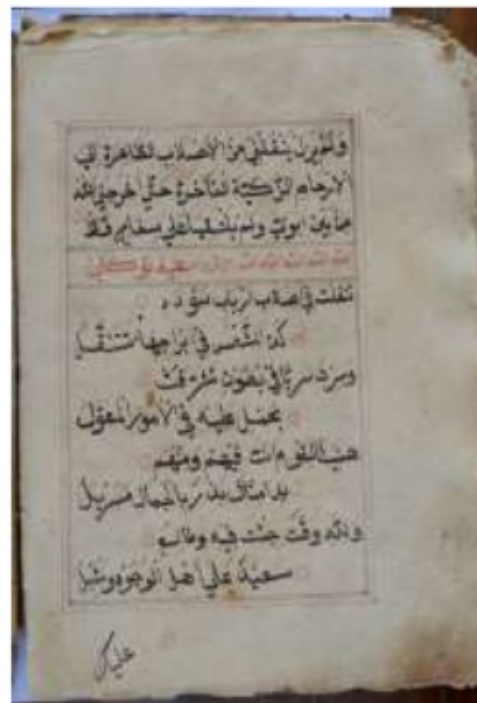 ولم يزل ينقلني من الاصلاب الطاهرة الى
الارحام الزكية الفاخرة حتى اخرجني الله
من بين ابوي ولم يلتقيا علي سفاح قط
الله الله الله الله الله
تنقلت في اصلاب ارباب سؤدد
كذا الشمس في ابراجها تتنقل
وسرت سريا في بطون تشرفت
بحمل عليه في الامور المعول
هنيا لقوم انت فيهم ومنهم
بدا منك بدر بالجمال مسربل
ولله وقت جئت فيه وطالع
سعيد علي اهل الوجود
عليك